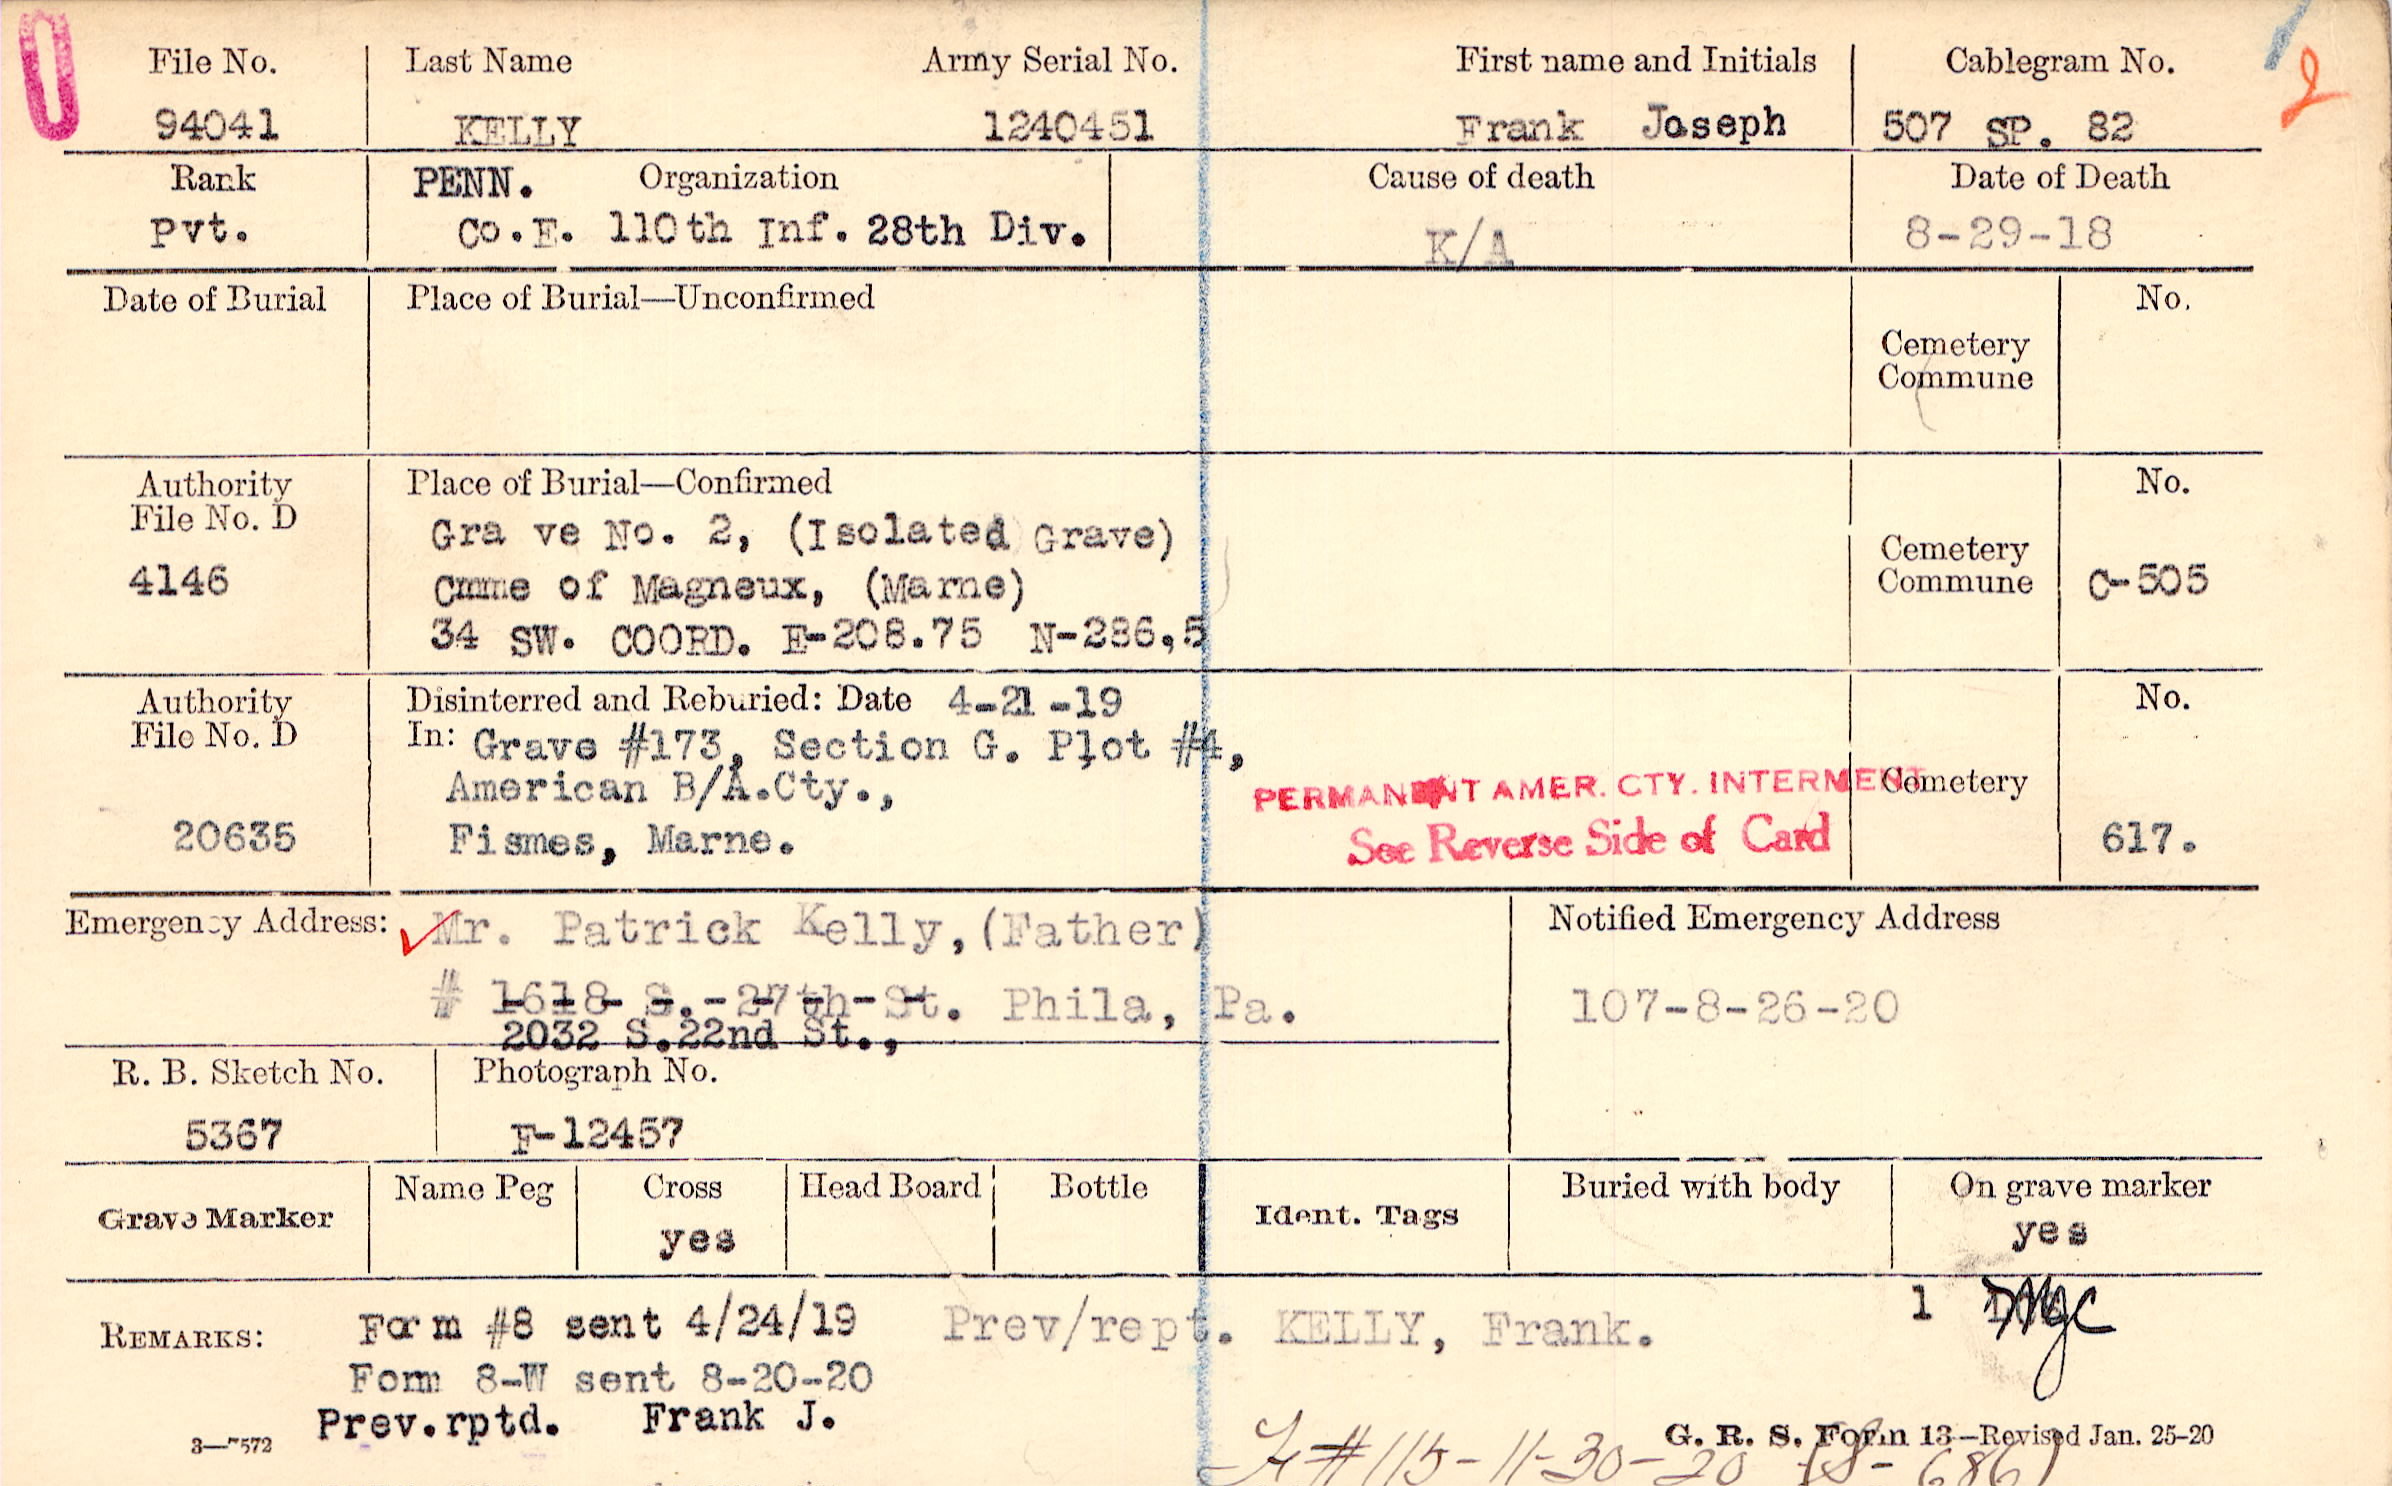 File No. Last Name Army Serial No. First name and Initials Cablegram No.
94041 KELLY 1240451 Frank Joseph 507 SP. 82
2
Rank PENN. Organization Cause of death Date of Death
Pvt. Co.E. 110th Inf. 28th Div. K/A 8-29-18
Date of Burial Place of Burial—Unconfirmed No.
Cemetery
Commune
Authority Place of Burial—Confirmed No.
File No. D Gra ve No. 2, (Isolated Grave)
4146 Cmme of Magneux, (Marne) Cemetery
Commune C-505
34 SW. COORD. E-208.75 N-286,5
Authority Disinterred and Reburied: Date 4-21-19 No.
File No. D In: Grave #173, Section G. Plot #4,
American B/A.Cty., PERMANENT AMER. CTY. INTERMENT Cemetery
20635 Fismes, Marne. See Reverse Side of Card 617.
Emergency Address: Mr. Patrick Kelly,(Father) Notified Emergency Address
# 1618 S. 27th St. Phila, Pa. 107-8-26-20
2032 S.22nd St.,
R. B. Sketch No. Photograph No.
5367 F-12457
Grave Marker Name Peg Cross Head Board Bottle Ident. Tags Buried with body On grave marker
yes yes
REMARKS: Form #8 sent 4/24/19 Prev/rept. KELLY, Frank. 1
Form 8-W sent 8-20-20
Prev.rptd. Frank J.
3—7572 G. R. S. Form 13—Revised Jan. 25-20
#115-11-30-20